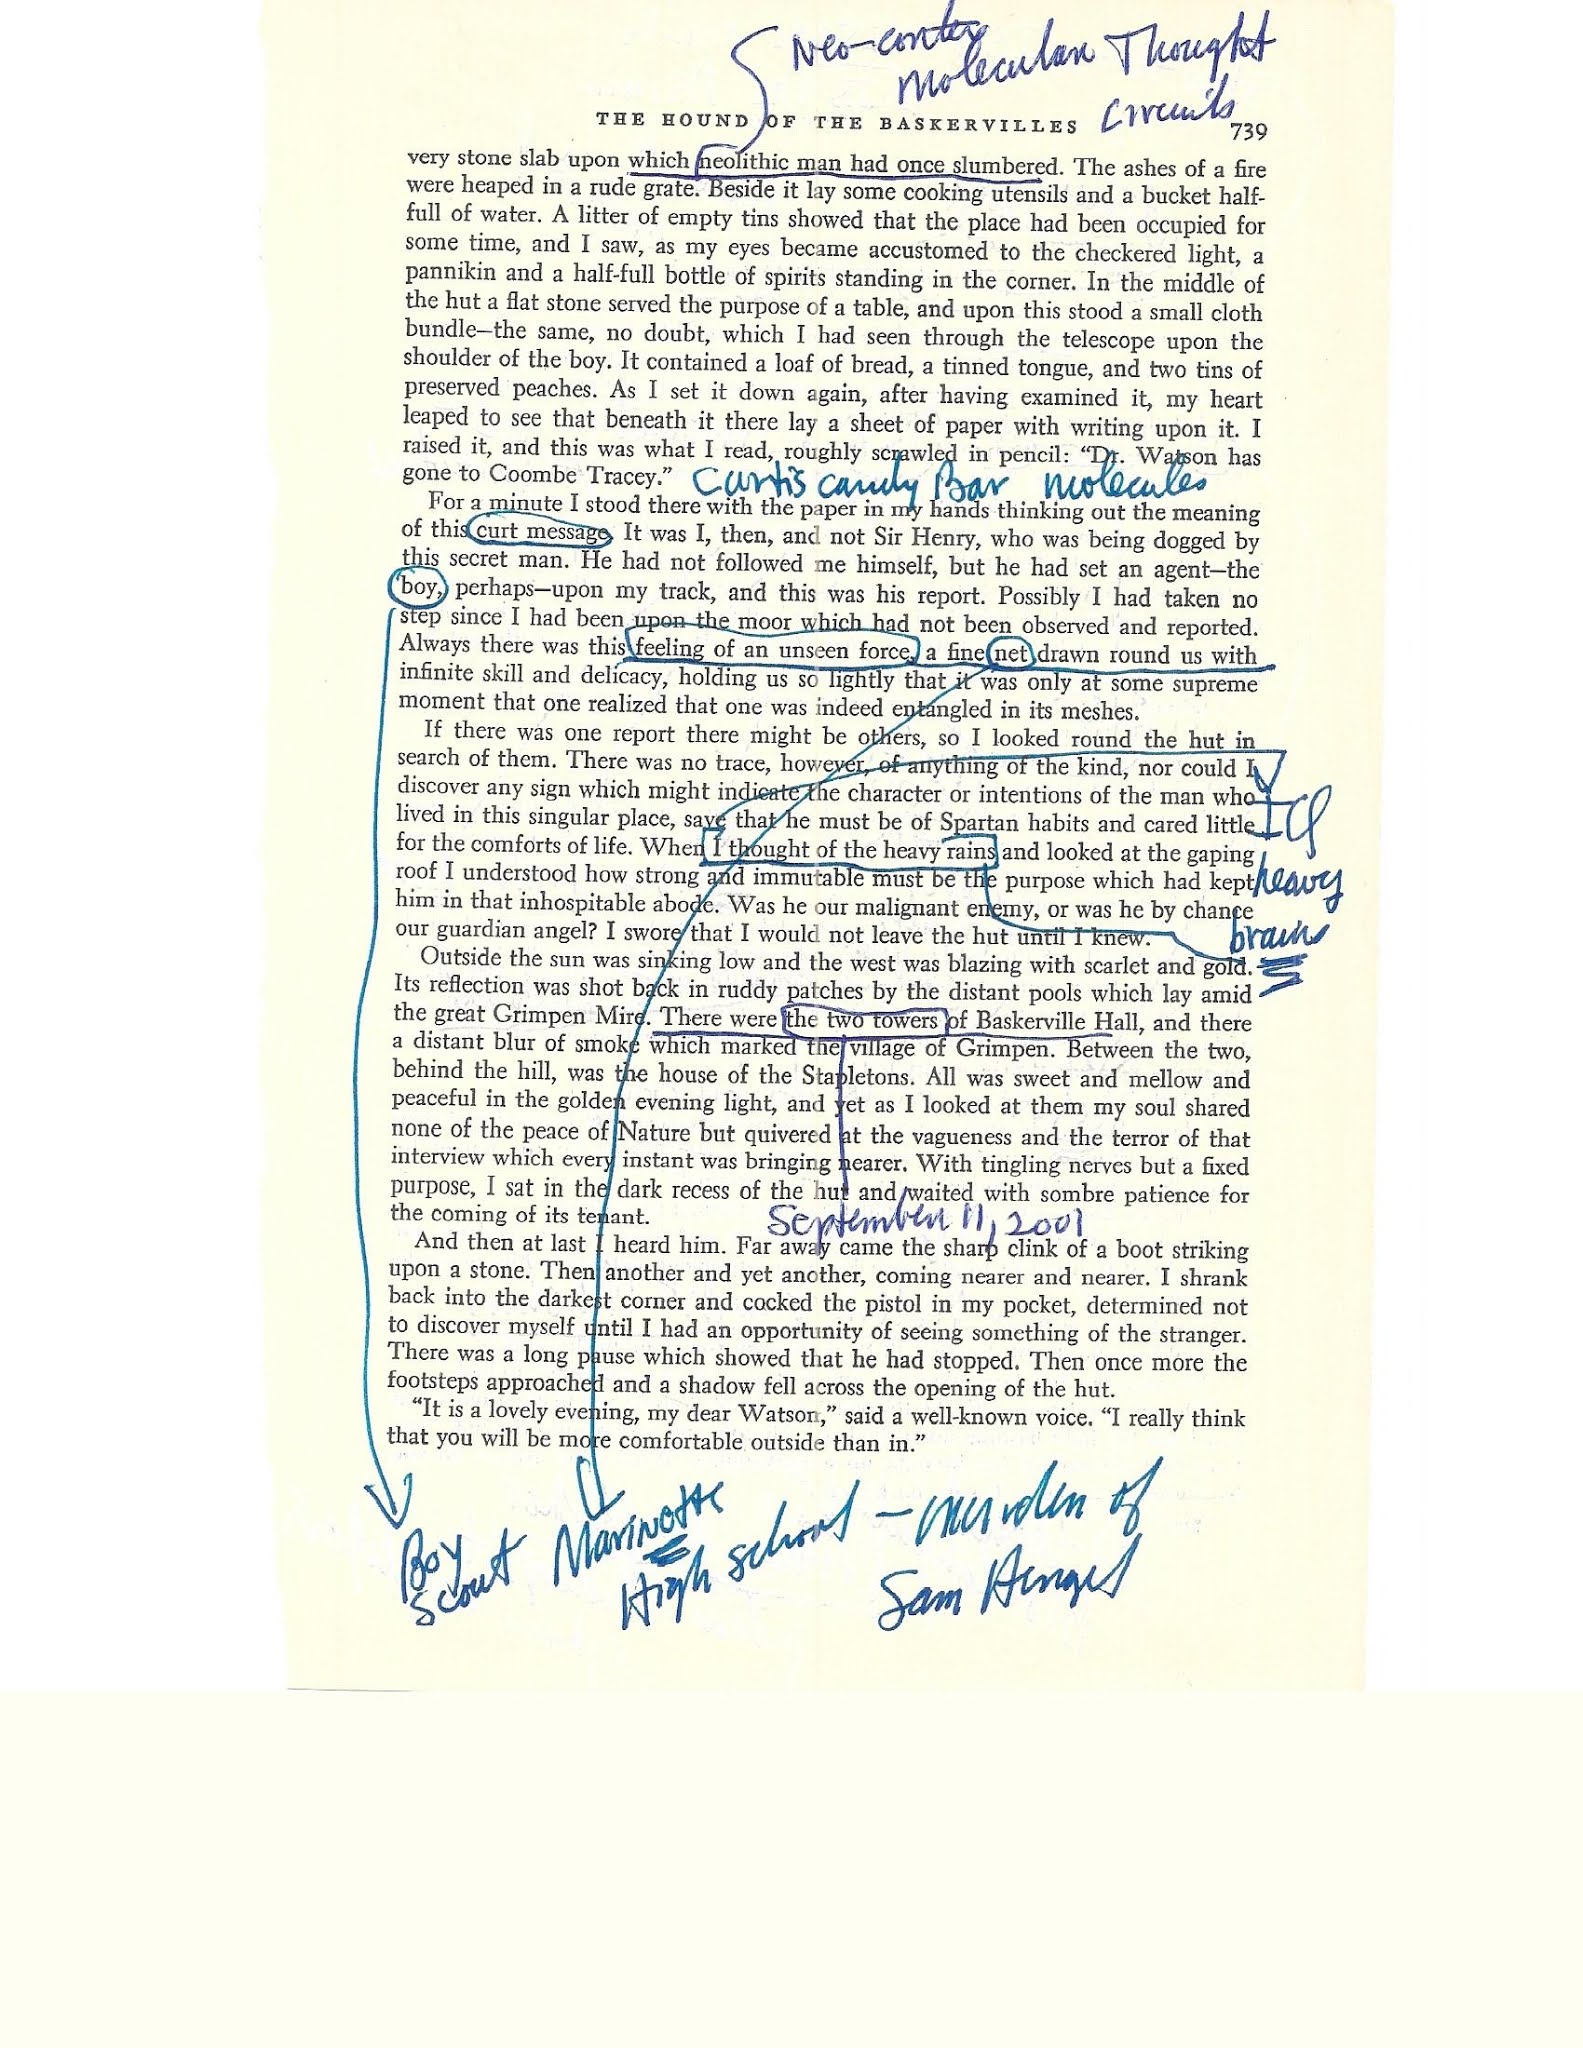 Neo-cortex
Molecular Thought
Circuits
THE HOUND OF THE BASKERVILLES
739
very stone slab upon which neolithic man had once slumbered. The ashes of a fire
were heaped in a rude grate. Beside it lay some cooking utensils and a bucket half-
full of water. A litter of empty tins showed that the place had been occupied for
some time, and I saw, as my eyes became accustomed to the checkered light, a
pannikin and a half-full bottle of spirits standing in the corner. In the middle of
the hut a flat stone served the purpose of a table, and upon this stood a small cloth
bundle—the same, no doubt, which I had seen through the telescope upon the
shoulder of the boy. It contained a loaf of bread, a tinned tongue, and two tins of
preserved peaches. As I set it down again, after having examined it, my heart
leaped to see that beneath it there lay a sheet of paper with writing upon it. I
raised it, and this was what I read, roughly scrawled in pencil: “Dr. Watson has
gone to Coombe Tracey.”
Curtis candy Bar molecules
For a minute I stood there with the paper in my hands thinking out the meaning
of this curt message. It was I, then, and not Sir Henry, who was being dogged by
this secret man. He had not followed me himself, but he had set an agent—the
boy, perhaps—upon my track, and this was his report. Possibly I had taken no
step since I had been upon the moor which had not been observed and reported.
Always there was this feeling of an unseen force, a fine net drawn round us with
infinite skill and delicacy, holding us so lightly that it was only at some supreme
moment that one realized that one was indeed entangled in its meshes.
If there was one report there might be others, so I looked round the hut in
search of them. There was no trace, however, of anything of the kind, nor could I
discover any sign which might indicate the character or intentions of the man who
lived in this singular place, save that he must be of Spartan habits and cared little
for the comforts of life. When I thought of the heavy rains and looked at the gaping
roof I understood how strong and immutable must be the purpose which had kept
him in that inhospitable abode. Was he our malignant enemy, or was he by chance
our guardian angel? I swore that I would not leave the hut until I knew.
heavy
brain
Outside the sun was sinking low and the west was blazing with scarlet and gold.
Its reflection was shot back in ruddy patches by the distant pools which lay amid
the great Grimpen Mire. There were the two towers of Baskerville Hall, and there
a distant blur of smoke which marked the village of Grimpen. Between the two,
behind the hill, was the house of the Stapletons. All was sweet and mellow and
peaceful in the golden evening light, and yet as I looked at them my soul shared
none of the peace of Nature but quivered at the vagueness and the terror of that
interview which every instant was bringing nearer. With tingling nerves but a fixed
purpose, I sat in the dark recess of the hut and waited with sombre patience for
the coming of its tenant.
September 11, 2001
And then at last I heard him. Far away came the sharp clink of a boot striking
upon a stone. Then another and yet another, coming nearer and nearer. I shrank
back into the darkest corner and cocked the pistol in my pocket, determined not
to discover myself until I had an opportunity of seeing something of the stranger.
There was a long pause which showed that he had stopped. Then once more the
footsteps approached and a shadow fell across the opening of the hut.
“It is a lovely evening, my dear Watson,” said a well-known voice. “I really think
that you will be more comfortable outside than in.”
Boy
Scout
Marinette
High school — murder of
Sam Hengel